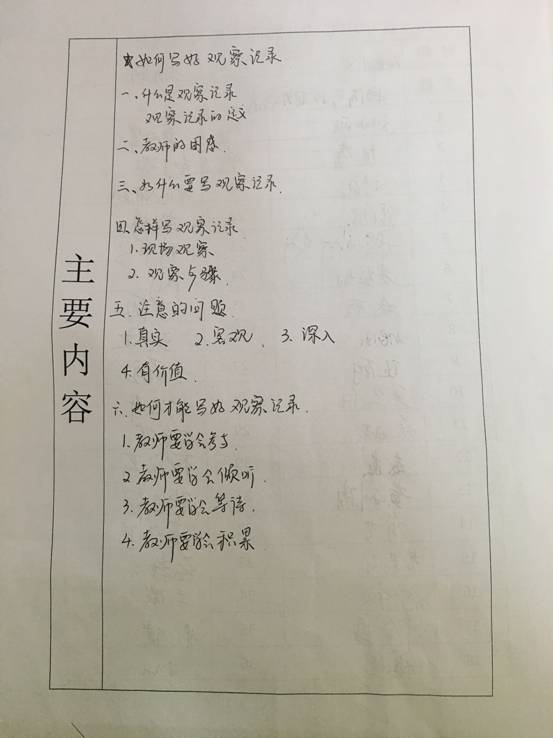 主要内容
如何写好观察记录
一、什么是观察记录
观察记录的定义
二、教师的困惑.
三、为什么要写观察记录.
四.怎样写观察记录
1.现场观察
2.观察步骤.
五.注意的问题.
1.真实 2.客观. 3.深入
4.有价值.
六.如何才能写好观察记录.
1.教师要学会参与
2.教师要学会倾听.
3.教师要学会等待.
4.教师要学会积累